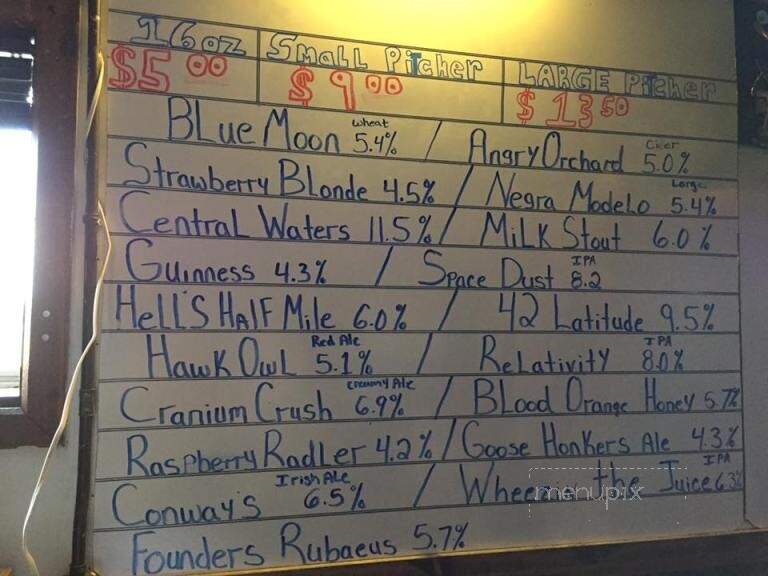 16oz Small Pitcher LARGE Pitcher
$5.00 $9.00 $13.50
Blue Moon wheat 5.4% / Angry Orchard Cider 5.0%
Strawberry Blonde 4.5% / Negra Modelo 5.4%
Central Waters 11.5% / Milk Stout 6.0%
Guinness 4.3% / Space Dust IPA 8.2
Hell's Half Mile 6.0% / 42 Latitude 9.5%
Hawk Owl Red Ale 5.1% / Relativity IPA 8.0%
Cranium Crush Creamy Ale 6.9% / Blood Orange Honey 5.7%
Raspberry Radler 4.2% / Goose Honkers Ale 4.3%
Conway's Irish Ale 6.5% / the Juice IPA
menupix
Founders Rubaeus 5.7%